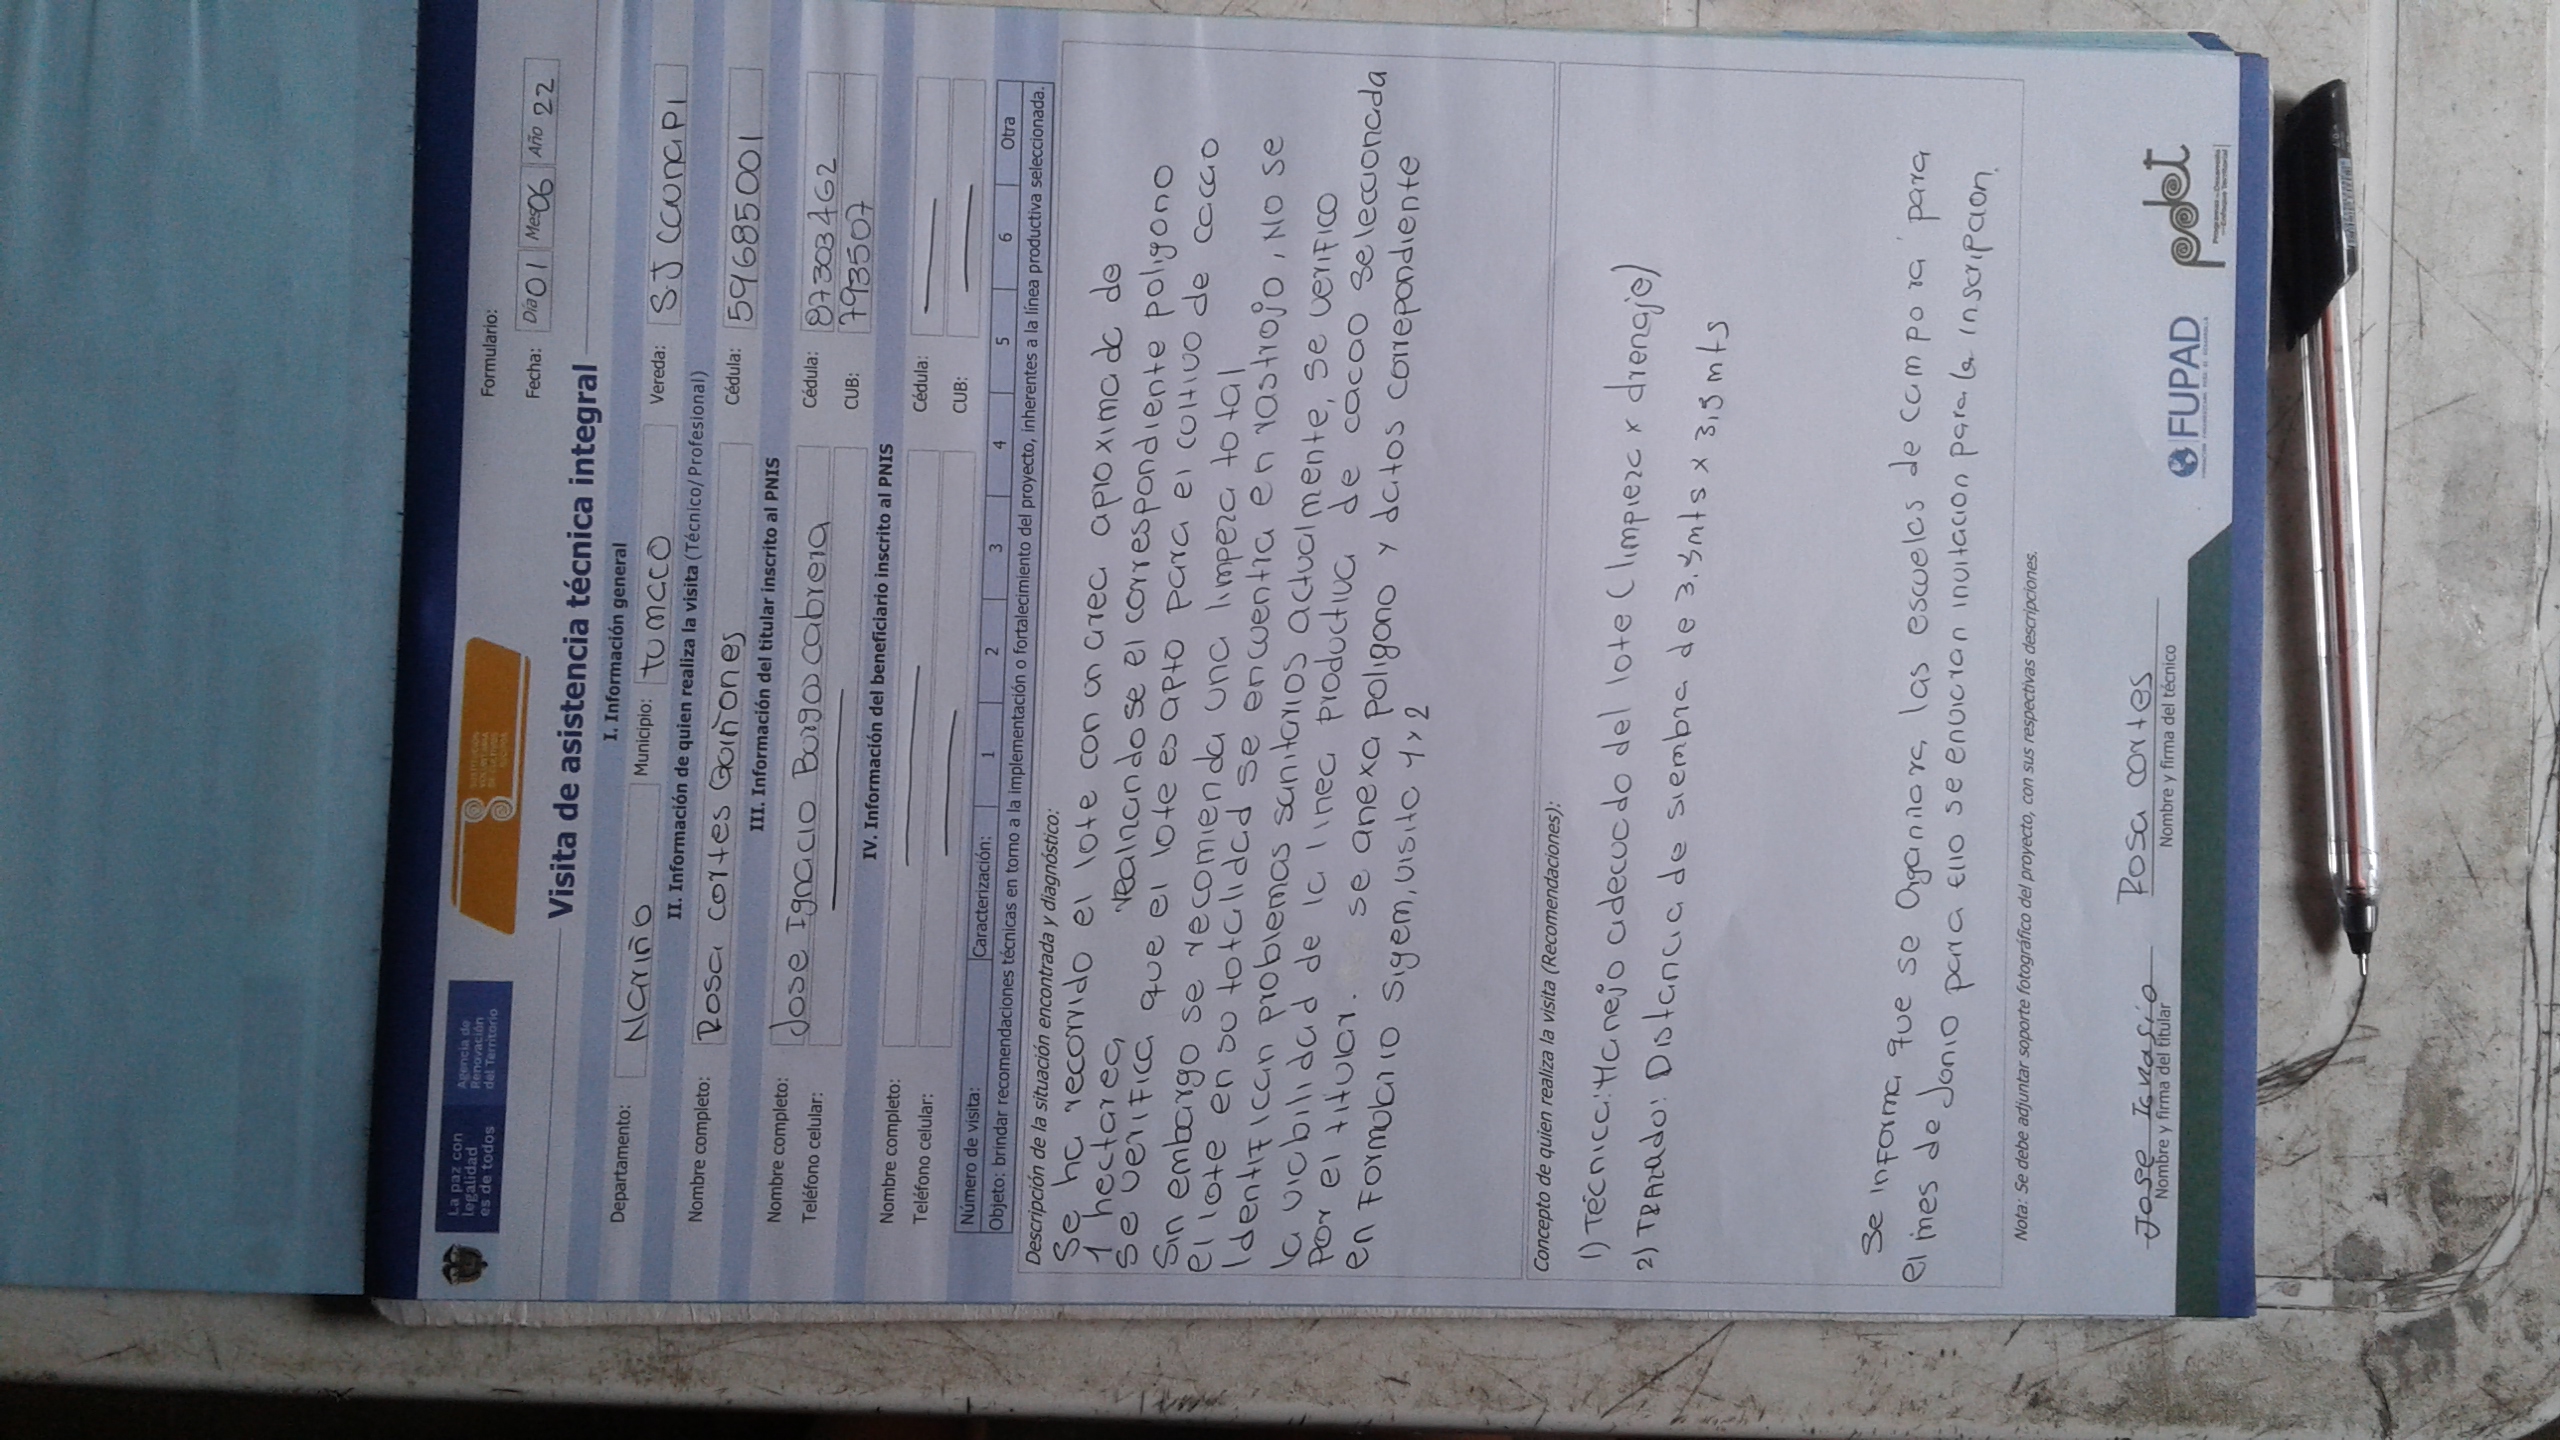 La paz con
legalidad
es de todos
Agencia de
Renovación
del Territorio
SUSTITUCIÓN
VOLUNTARIA
DE CULTIVOS
ILÍCITOS
Formulario:
Fecha: Día 01 Mes 06 Año 22
Visita de asistencia técnica integral
I. Información general
Departamento: Nariño Municipio: tumaco Vereda: SJ Cauna PI
II. Información de quien realiza la visita (Técnico/Profesional)
Nombre completo: Rosa cortes Quiñones Cédula: 59685001
III. Información del titular inscrito al PNIS
Nombre completo: Jose Ignacio Burgos cabrera Cédula: 87303462
Teléfono celular: — CUB: 793507
IV. Información del beneficiario inscrito al PNIS
Nombre completo: — Cédula: —
Teléfono celular: — CUB: —
Número de visita: Caracterización: 1 2 3 4 5 6 Otra
Objeto: brindar recomendaciones técnicas en torno a la implementación o fortalecimiento del proyecto, inherentes a la línea productiva seleccionada.
Descripción de la situación encontrada y diagnóstico:
Se ha recorrido el lote con un area aproximade de
1 hectarea realnando se el correspondiente poligono
se verifica que el lote es apto para el coltivo de cacao
Sin embargo se recomienda una limpeza total
el lote en su totalidad se encuentra en rastrojo, No se
Identifican problemas sanitarios actualmente, se verifico
la viabilidad de la linea productiva de cacao seleccionada
Por el titular. se anexa poligono y datos correpondiente
en Formulario sigem, visita 1 y 2
Concepto de quien realiza la visita (Recomendaciones):
1) Técnica: Manejo adecuado del lote (limpieza x drenaje)
2) TRAzado: Distancia de siembra de 3.5mts x 3,5mts
Se informa que se Organinora las escuelas de campo ra para
el mes de Jonio para ello se enviaran invitacion para la inscripcion.
Nota: Se debe adjuntar soporte fotográfico del proyecto, con sus respectivas descripciones.
Jose Ignasio
Nombre y firma del titular
Rosa cortes
Nombre y firma del técnico
FUPAD
pdet
Programas de Desarrollo
con Enfoque Territorial